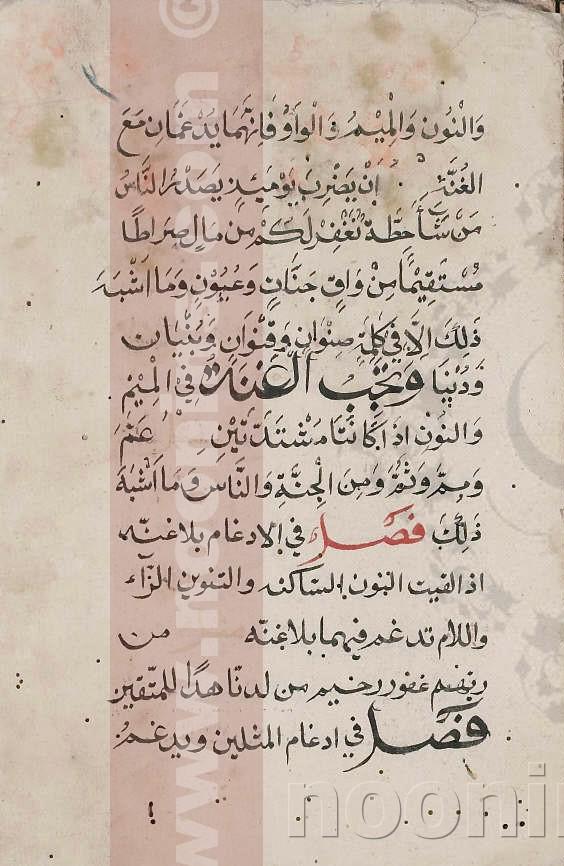 وَالنُونِ وَالْمِيْمِ وَالْوَاوِ فَاِنَّهُمَا يُدْغَمَانِ مَعَ
الغُنَّةِ اَنْ يَضْرِبَ يَوْمَئِذٍ يَصْدُرُ النَّاسُ
مَنْ شَآءَ حِطَّةٌ نَغْفِرْ لَكُمْ مِن مَالٍ صِرَاطًا
مُسْتَقِيْمًا مِنْ وَاقٍ جَنَّاتٍ وَعُيُوْنٍ وَمَا اَشْبَهَ
ذَلِكَ اِلَّا فِي كَلِمَةٍ صِنْوَانٍ وَقِنْوَانٍ وَبُنْيَانٍ
وَدُنْيَا وَتَجِبُ الْغُنَّةُ فِي الْمِيْمِ
وَالنُوْنِ اِذَا كَانَتَا مُشْتَدَّتَيْنِ عَمَّ
وَمِمَّ وَثُمَّ وَمِنَ الْجِنَّةِ وَالنَّاسِ وَمَا اَشْبَهَ
ذَلِكَ فَصْلٌ فِي الادغام بلاغنه
اذ القيت النون الساكنه والتنوين الرّاء
واللام تدغم فيهما بلاغنه من
ربهم غفور رحيم من لدنا هدًا للمتّقين
فَصْل في ادغام المثلين ويدغم
www.noormags.com ©
noonin